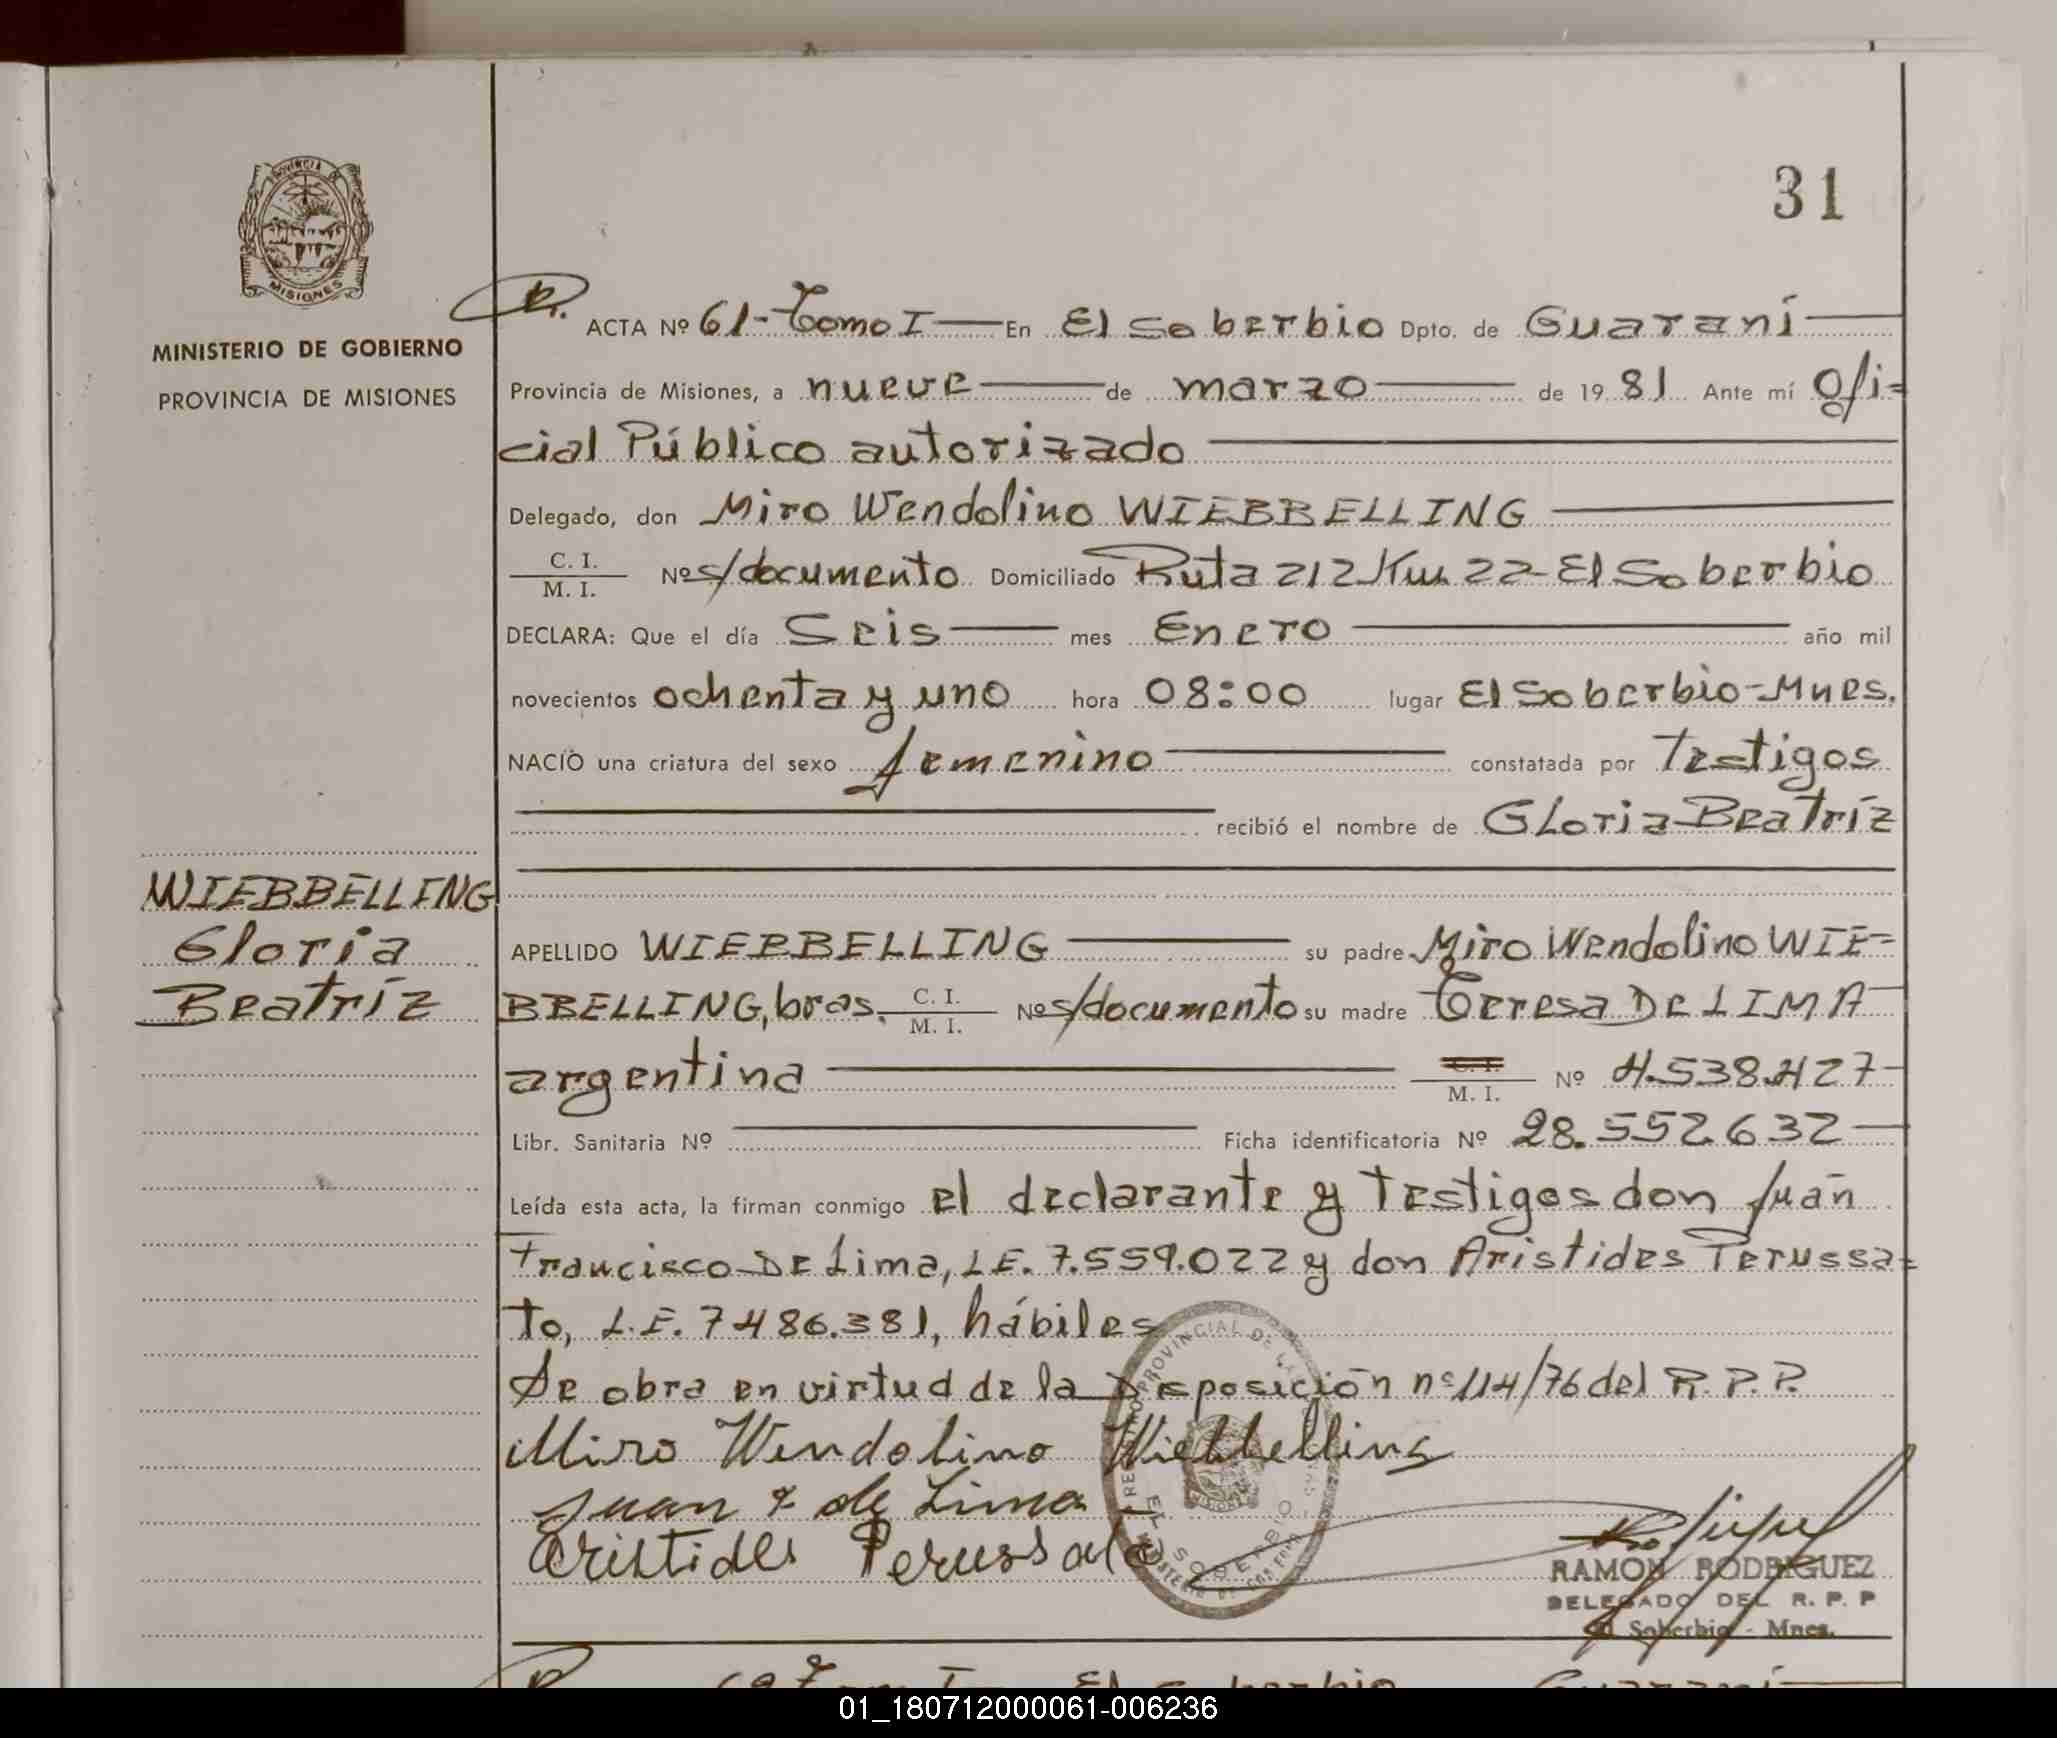 31
PROVINCIA DE
MISIONES
MINISTERIO DE GOBIERNO
PROVINCIA DE MISIONES
ACTA Nº 61-Tomo I En El Soberbio Dpto. de Guaraní
Provincia de Misiones, a nueve de marzo de 1981 Ante mí Ofi=
cial Público autorizado
Delegado, don Miro Wendolino WIEBBELLING
C. I.
M. I. Nº s/documento Domiciliado Ruta 212 Km 22-El Soberbio
DECLARA: Que el día Seis mes Enero año mil
novecientos ochenta y uno hora 08:00 lugar El Soberbio-Mnes.
NACIÓ una criatura del sexo femenino constatada por Testigos
recibió el nombre de Gloria Beatríz
WIEBBELLING
Gloria
Beatríz
APELLIDO WIEBBELLING su padre Miro Wendolino WIE=
BBELLING, bras. C. I. M. I. Nº s/documento su madre Teresa De LIMA
argentina C. I. M. I. Nº 4.538.427
Libr. Sanitaria Nº Ficha identificatoria Nº 28.552.632
Leída esta acta, la firman conmigo el declarante y Testigos don Juan
Francisco De Lima, L.E. 7.559.022 y don Aristides Perussa=
to, L.E. 7486.381, hábiles
Se obra en virtud de la Disposición nº 114/76 del R.P.P.
Miro Wendolino Wiebbelling
Juan F de Lima
Aristides Perussato
EL SOBERBIO
RAMON RODRIGUEZ
DELEGADO DEL R. P. P
El Soberbio - Mnes.
El Soberbio Guaraní
01_180712000061-006236